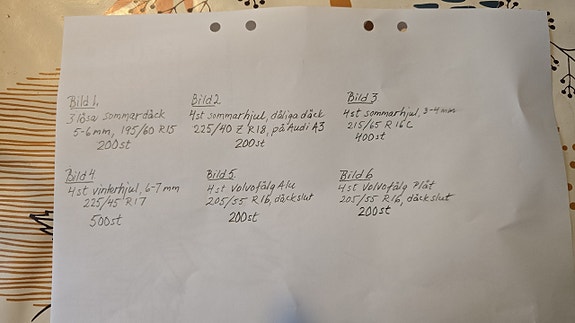 Bild 1.
3 lösa sommardäck
5-6mm, 195/60 R15
200st
Bild 2
4st sommarhjul, dåliga däck
225/40 Z R18, på Audi A3
200st
Bild 3
4st sommarhjul, 3-4mm
215/65 R16C
400st
Bild 4
4st vinterhjul, 6-7mm
225/45 R17
500st
Bild 5
4st Volvofälg Alu
205/55 R16, däck slut
200st
Bild 6
4st Volvofälg Plåt
205/55 R16, däck slut
200st